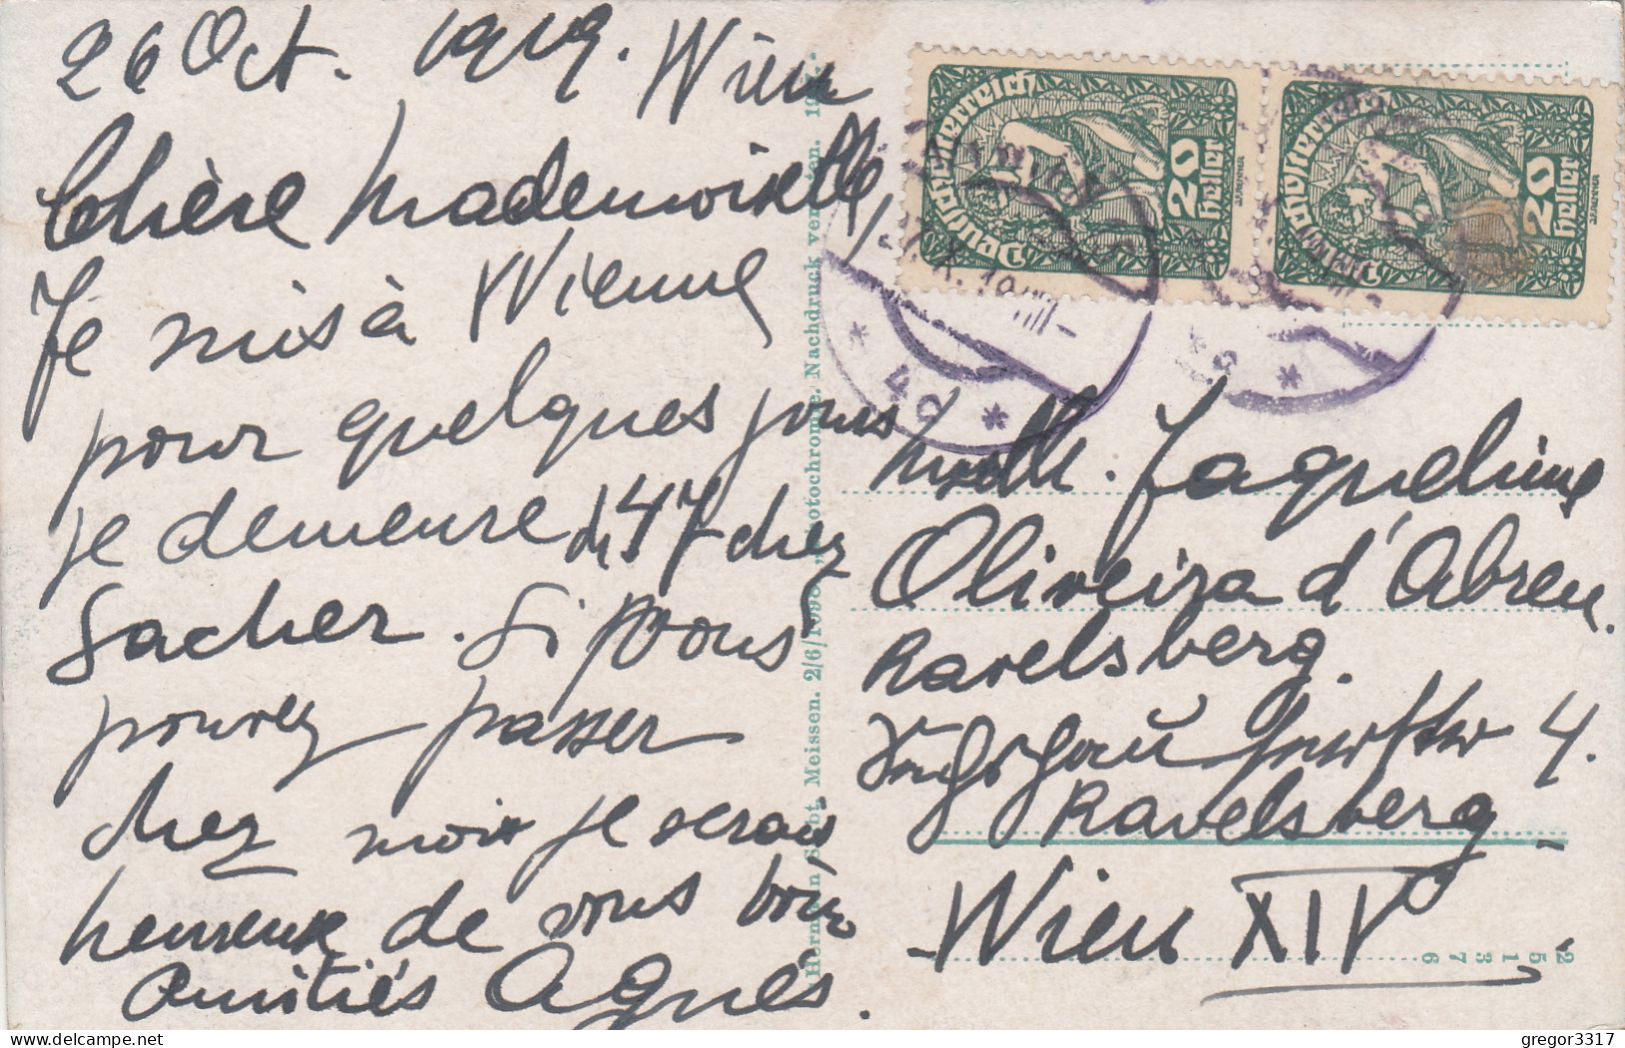 26 Oct. 1919. Wien
Chère Mademoiselle,
Je suis à Wienne
pour quelques jours
je demeure 47 chez
Sacher. Si vous
pouvez passer
chez moi je serais
heureuse de vous voir
Amitiés Agnès.
Deutschösterreich
20
heller
Deutschösterreich
20
heller
27. X. 19
Mselle. Jaqueline
Oliveira d'Abreu.
Ravelsberg.
4.
Ravelsberg
Wien XIV
Meissen. 2/6/1090 Photochromie. Nachdruck verboten.
2 5 1 3 7 6
gregor3317